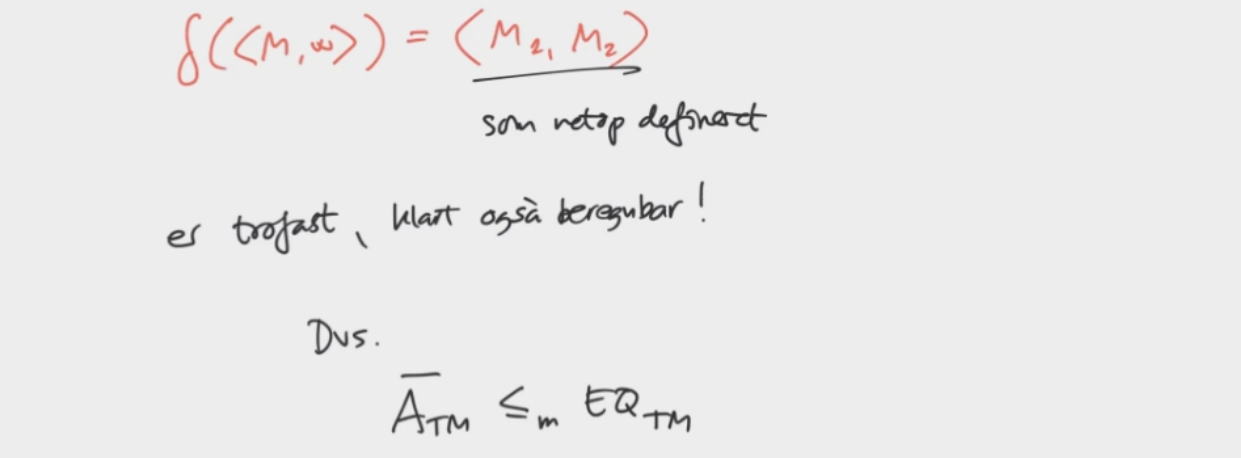 f(⟨M,w⟩) = ⟨M₁, M₂⟩
som netop defineret
er trofast, klart også beregnbar!
Dvs.
A̅_TM ≤_m EQ_TM